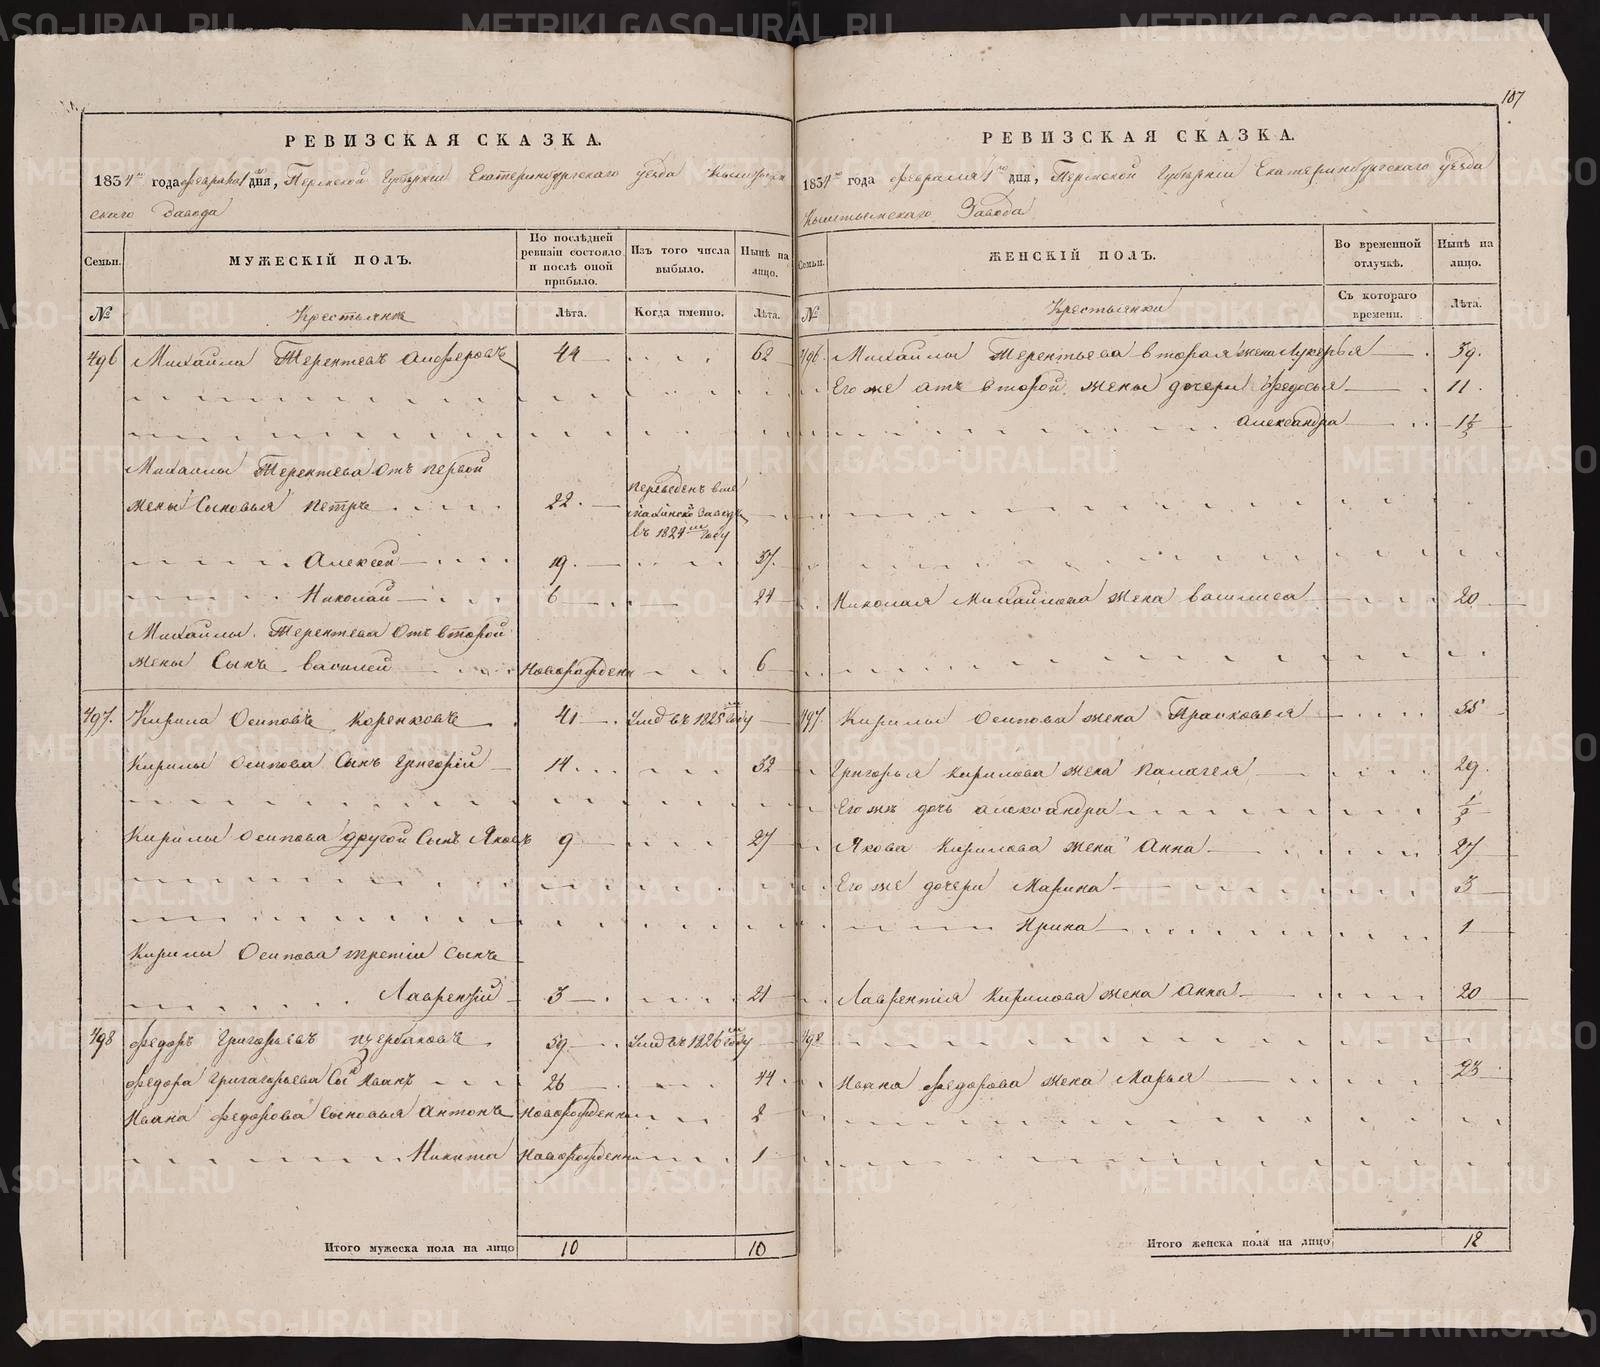 107
РЕВИЗСКАЯ СКАЗКА.
1834го года февраля 1 дня, Пермской Губернии Екатеринбургского уезда Кыштым
скаго Завода
Семьи. МУЖЕСКІЙ ПОЛЪ. По послѣдней ревизіи состояло и послѣ оной прибыло. Изъ того числа выбыло. Нынѣ на лицо.
№ Крестьяне Лѣта. Когда именно. Лѣта.
496 Михаила Терентевъ Алферовъ 44 62
Михаилы Терентева отъ первой
жены Сыновья Петръ 22. переведенъ в
заводъ
въ 1824м году
Алексей 19. 37.
Николай 6 24
Михаилы Терентева отъ второй
жены Сынъ Василей Новорожденъ 6
497. Кирила Осиповъ Коренковъ 41 Умеръ 1825 году
Кирилы Осипова Сынъ Григорій 14. 32
Кирилы Осипова другой Сынъ Яковъ 9 27
Кирилы Осипова третій Сынъ
Лаврентій 3 21
498 Федоръ Григорьевъ Щербаковъ 39 Умеръ 1826м году
Федора Григорьева Сынъ Иванъ 26 44
Ивана Федорова Сыновья Антонъ Новорожденны 2
Никита Новорожденны 1
Итого мужеска пола на лицо 10 10
РЕВИЗСКАЯ СКАЗКА.
1834го года февраля 1го дня, Пермской Губерніи Екатеринбургскаго уезда
Кыштымскаго Завода
Семьи. ЖЕНСКІЙ ПОЛЪ. Во временной отлучкѣ. Нынѣ на лицо.
№ Крестьянки Съ котораго времени. Лѣта.
496. Михаилы Терентьева вторая жена Лукерья 39.
Его же отъ второй жены дочери Федосья 11.
Александра 1½
Николая Михайлова жена Василиса 20
497 Кирилы Осипова жена Прасковья 55
Григорья Кирилова жена Палагея 29.
Его же дочь Александра ½
Якова Кирилова жена Анна 27
Его же дочери Марина 3
Ирина 1
Лаврентія Кирилова жена Анна 20
498
Ивана Федорова жена Марья 23
Итого женска пола на лицо 12
METRIKI.GASO-URAL.RU